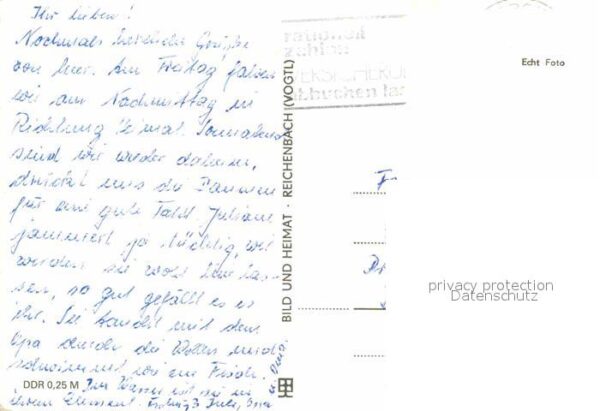 Ihr Lieben!
Nochmals herzliche Grüße
von hier. Am Freitag fahren
wir am Nachmittag in
Richtung Heimat. Sonnabend
sind wir wieder daheim,
drückt uns die Daumen
für eine gute Fahrt. Juliane
jammert ja tüchtig, wir
werden sie wohl hier las-
sen, so gut gefällt es es
ihr. Sie tandelt mit dem
Opa durch die Wellen und
schwimmt wie ein Fisch.
Im Wasser ist sie in
ihrem Element.
DDR 0,25 M
BILD UND HEIMAT · REICHENBACH (VOGTL)
rationell
zahlen
VERSICHERUN
abbuchen las
Echt Foto
privacy protection
Datenschutz